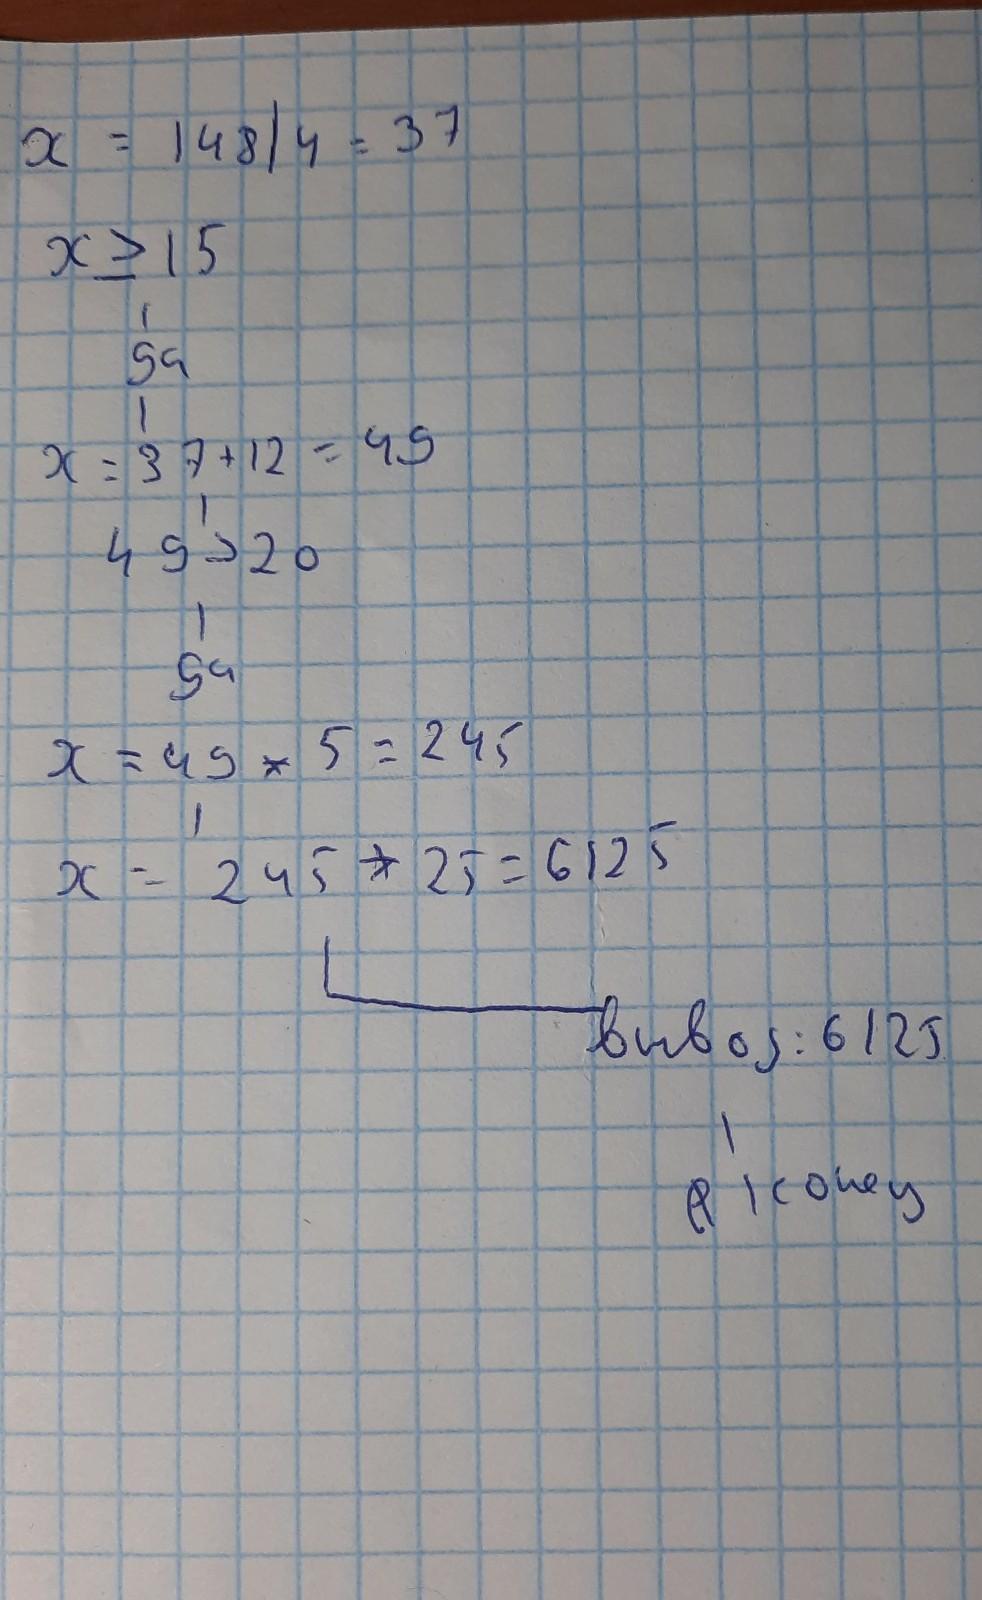 x = 148/4 = 37
x ≥ 15
да
x = 37+12 = 49
49 > 20
да
x = 49 * 5 = 245
x = 245 * 25 = 6125
вывод: 6125
конец